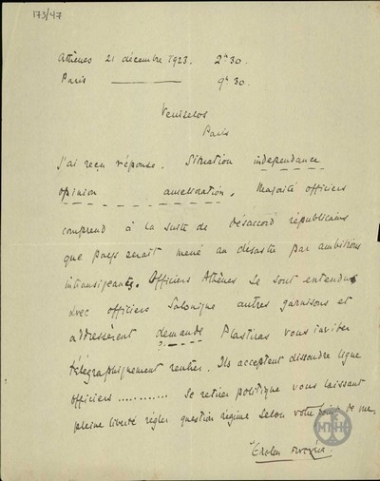 173/47
Athènes 21 décembre 1923. 2ʰ30.
Paris 9ʰ30.
Venizelos
Paris
J'ai reçu réponse. Situation independance
opinion amelioration. Majorité officiers
comprend à la suite de désaccord républicains
que pays serait mené au désastre par ambitions
intransigeants. Officiers Athènes se sont entendus
avec officiers Salonique autres garnisons et
adressèrent demande Plastiras vous inviter
télégraphiquement rentrer. Ils acceptent dissoudre ligue
officiers ........... se retirer politique vous laissant
pleine liberté régler question régime selon votre point de vue.